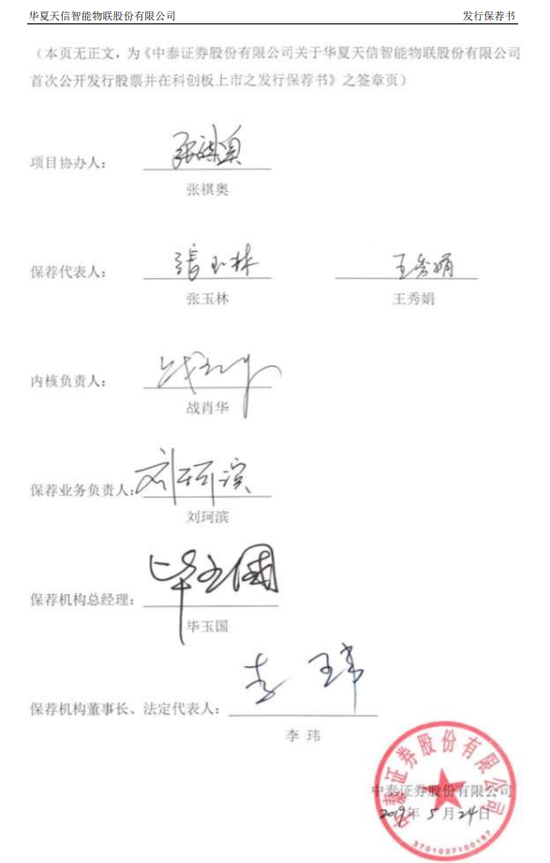 华夏天信智能物联股份有限公司 发行保荐书
（本页无正文，为《中泰证券股份有限公司关于华夏天信智能物联股份有限公司
首次公开发行股票并在科创板上市之发行保荐书》之签章页）
项目协办人： 张祺奥
张祺奥
保荐代表人： 張玉林 王秀娟
张玉林 王秀娟
内核负责人： 战肖华
战肖华
保荐业务负责人： 刘珂滨
刘珂滨
保荐机构总经理： 毕玉国
毕玉国
保荐机构董事长、法定代表人： 李玮
李 玮
中泰证券股份有限公司
中泰证券股份有限公司
2019年 5月24日
3701037100187